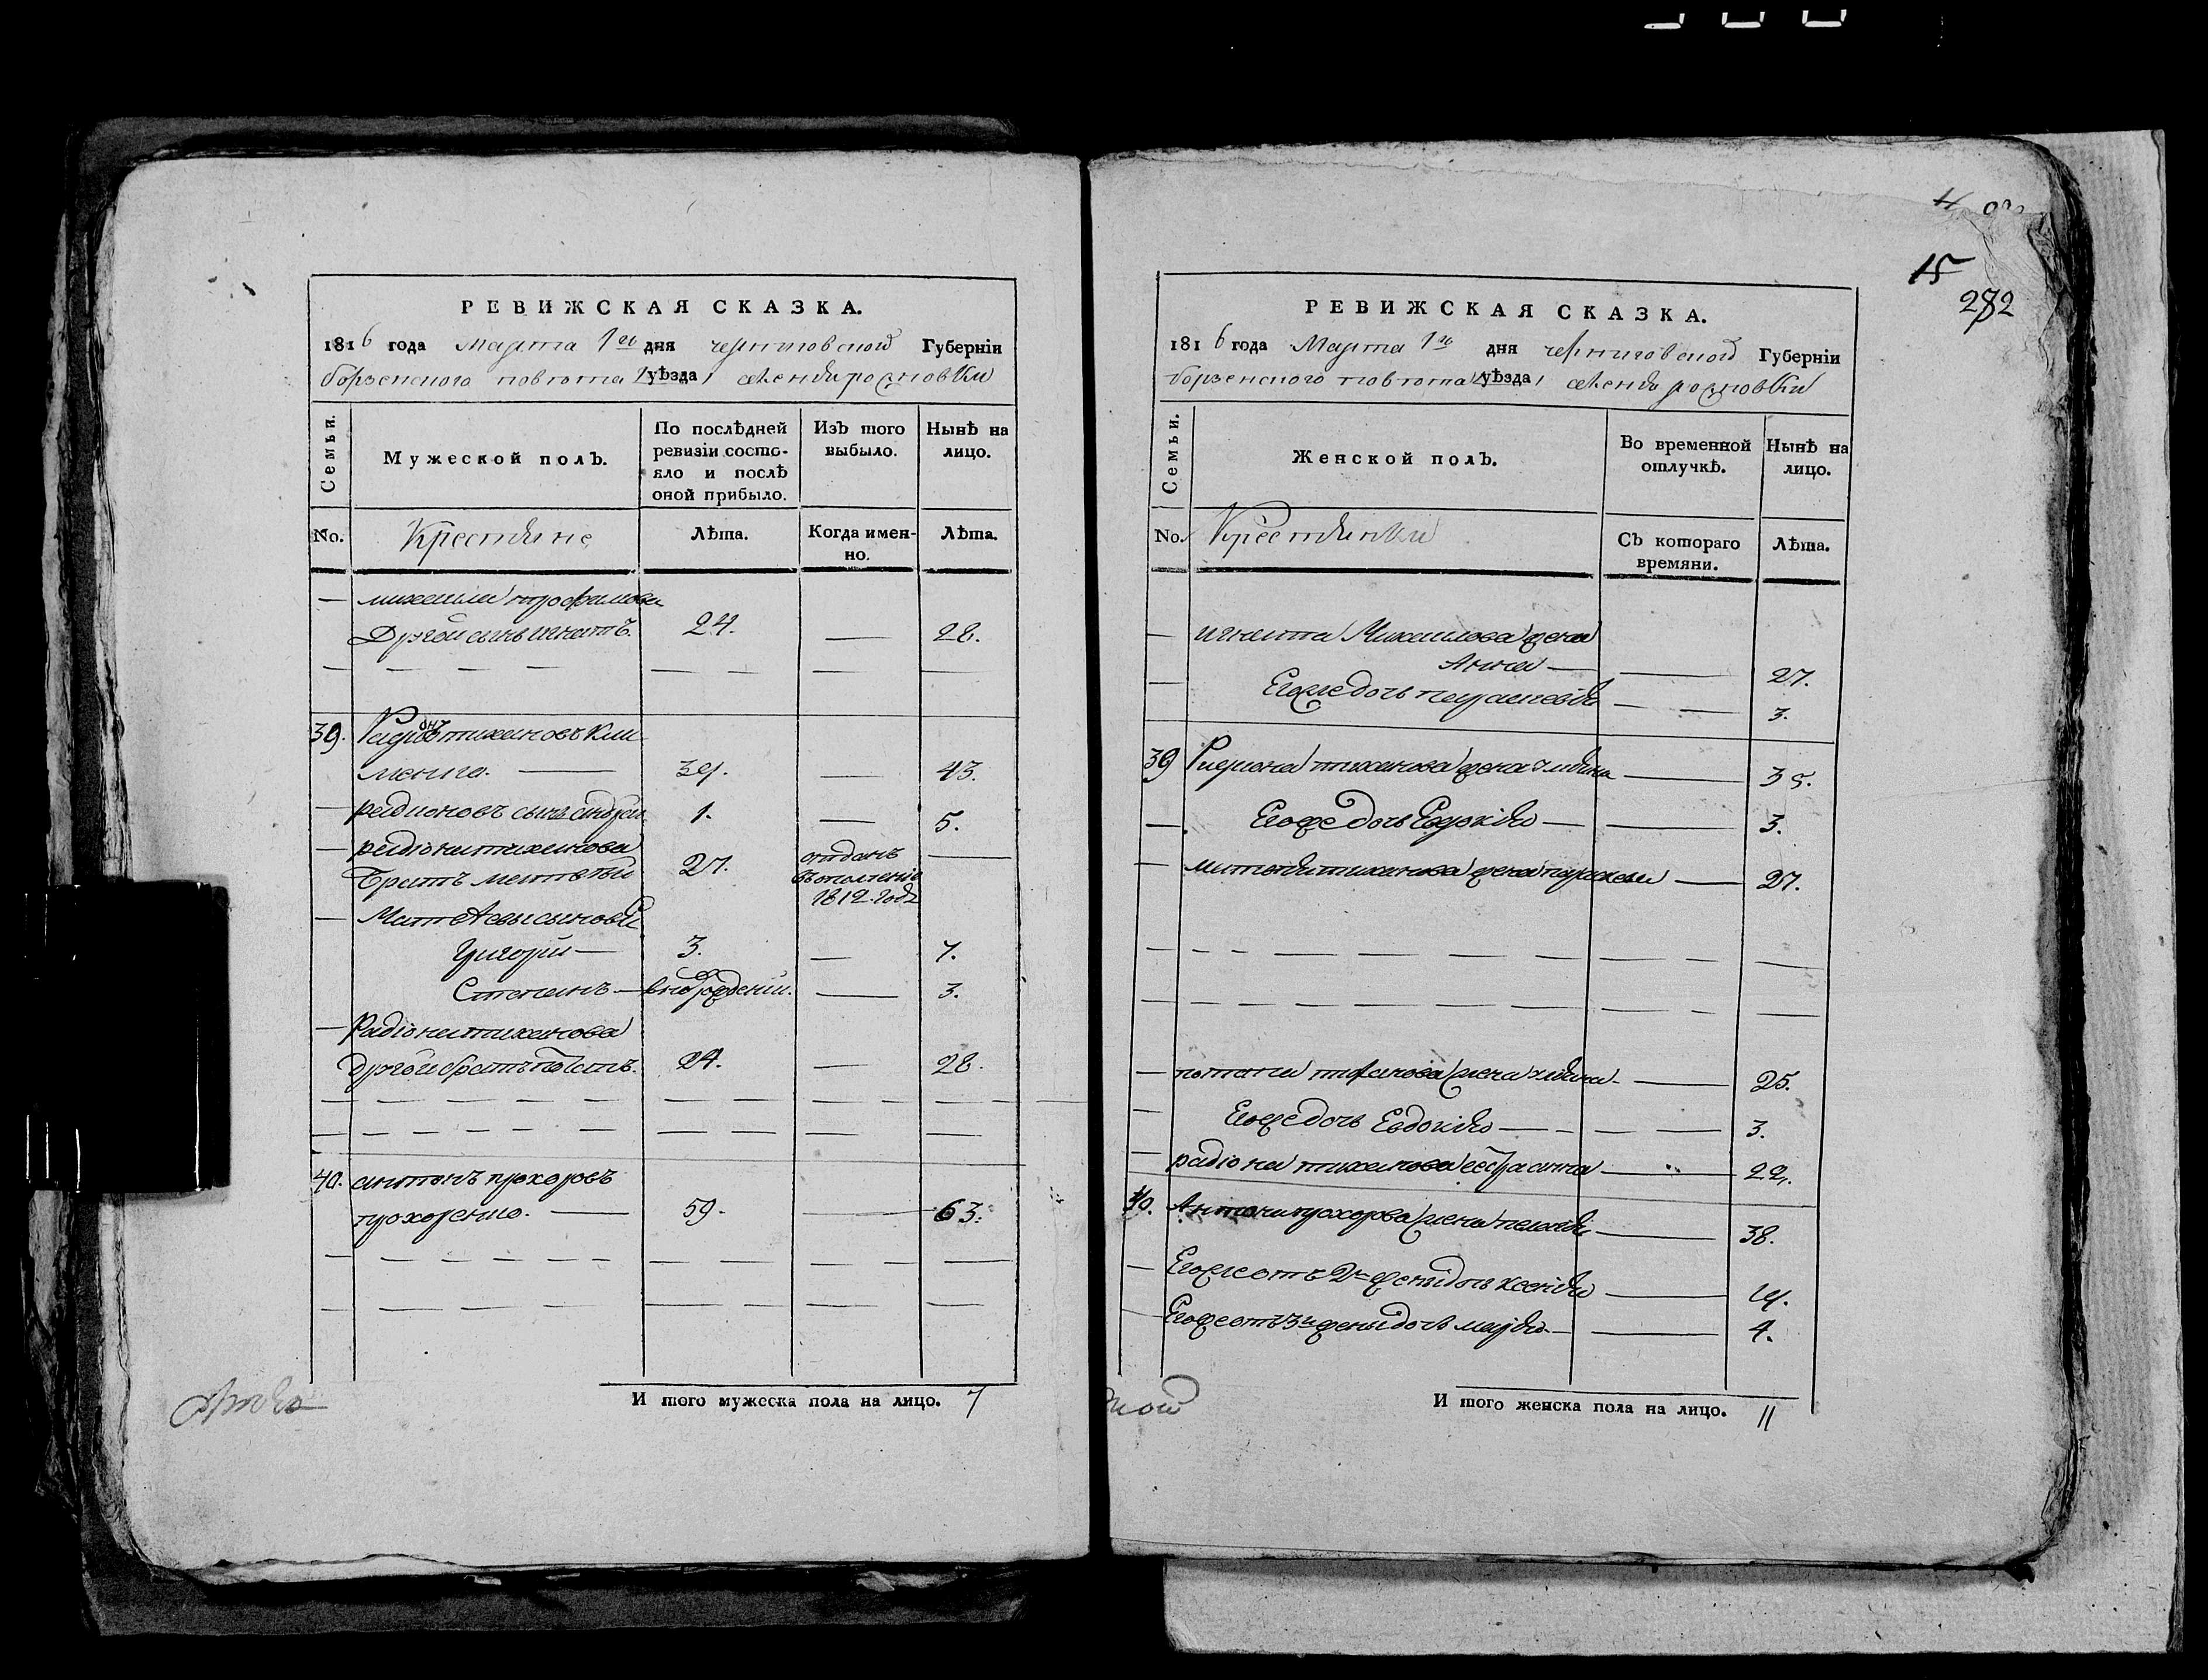 РЕВИЖСКАЯ СКАЗКА.
1816 года Марта 1го дня черниговской Губернiи
борзенского повета /уѣзда/
Семьи.
Мужеской полЪ.
По послѣдней ревизiи состо-
яло и послѣ
оной прибыло.
ИзЪ того выбыло.
Нынѣ на лицо.
No.
Крестяне
Лѣта.
Когда имен-
но.
Лѣта.
— михаила трофимова
Другой сынъ игнатъ. 24. — 28.
39. Радионъ тихановъ кли
менко. — 39. — 43.
— радионовъ сынъ андрей 1. — 5.
— радiона тиханова
братъ матвей 27. отданъ
въ ополченiе
1812. года —
— Матвея сыновя
григори — 3. — 7.
Степанъ — новорожденій. — 3.
— Радiона тиханова
другой братъ потапъ. 24. — 28.
40. антонъ прохоровъ
прохоренко. — 59. — 63.
И того мужеска пола на лицо. 7
15
282
РЕВИЖСКАЯ СКАЗКА.
1816 года Марта 1го дня черниговской Губернiи
борзенского повета /уѣзда/
Семьи.
Женской полЪ.
Во временной отлучкѣ.
НынѣЪ на лицо.
No.
Крестянки
СЪ котораго времяни.
Лѣта.
— игната Михаилова жена
Анна — 27.
— Егоже дочь парасковiя — 3.
39 Радиона тиханова жена — 35.
— Егоже дочь Евдокiя — 3.
— матвея тиханова жена параскева — 27.
— потапа тиханова жена — 25.
— Егоже дочь Евдокiя — 3.
— радiона тиханова сестра анна — 22.
40. Антона прохорова жена пелагея — 38.
— Егоже отъ 2й жены дочь ксенiя — 19.
— Егоже отъ 3й жены дочь марiя — 4.
И того женска пола на лицо. 11